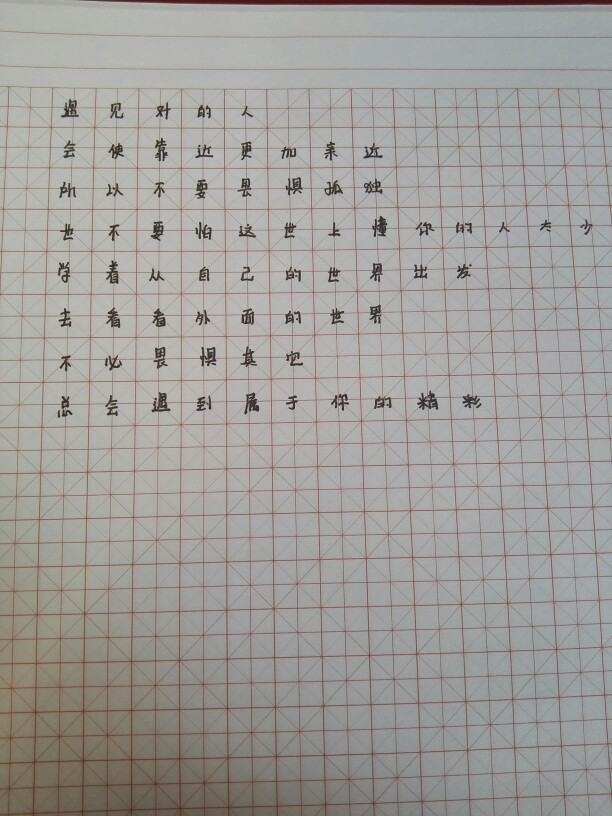 遇见对的人
会使靠近更加亲近
所以不要畏惧孤独
也不要怕这世上懂你的人太少
学着从自己的世界出发
去看看外面的世界
不必畏惧其它
总会遇到属于你的精彩